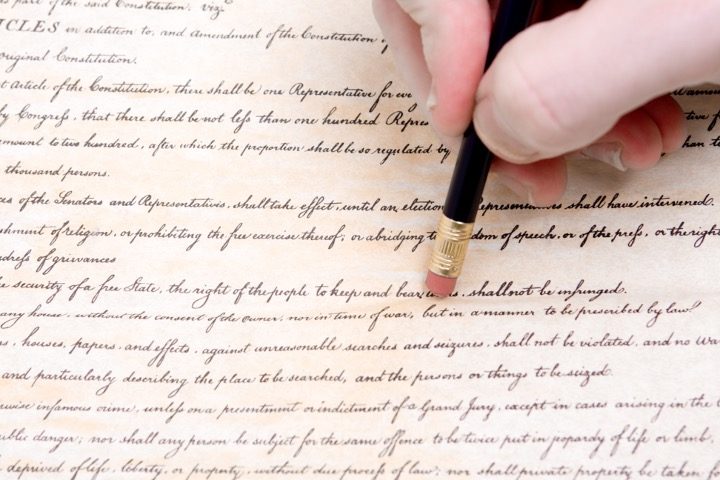 part of the said Constitution. viz.
ICLES in addition to, and amendment of the Constitution
original Constitution.
Article of the Constitution, there shall be one Representative for
by Congrefs, that there shall be not lefs than one hundred Repres
amount to two hundred, after which the proportion shall be so regulated by
thousand persons.
of the Senators and Representatives, shall take effect, until an election Representatives shall have intervened.
shment of religion, or prohibiting the free exercise thereof; or abridging dom of speech, or of the prefs, or the right
drefs of grievances
security of a free State, the right of the people to keep and bear, shall not be infringed.
any house, without the consent of the Owner, nor in time of war, but in a manner to be prescribed by law.
houses, papers, and effects, against unreasonable searches and seizures, shall not be violated, and no Wa
and particularly describing the place to be searched, and the persons or things to be seized.
wise infamous crime, unlefs on a presentment or indictment of a Grand Jury, except in cases arising in the
ublic danger; nor shall any person be subject for the same offence to be twice put in jeopardy of life or limb,
deprived of life, liberty, or property, without due procefs of law; nor shall private property be taken for